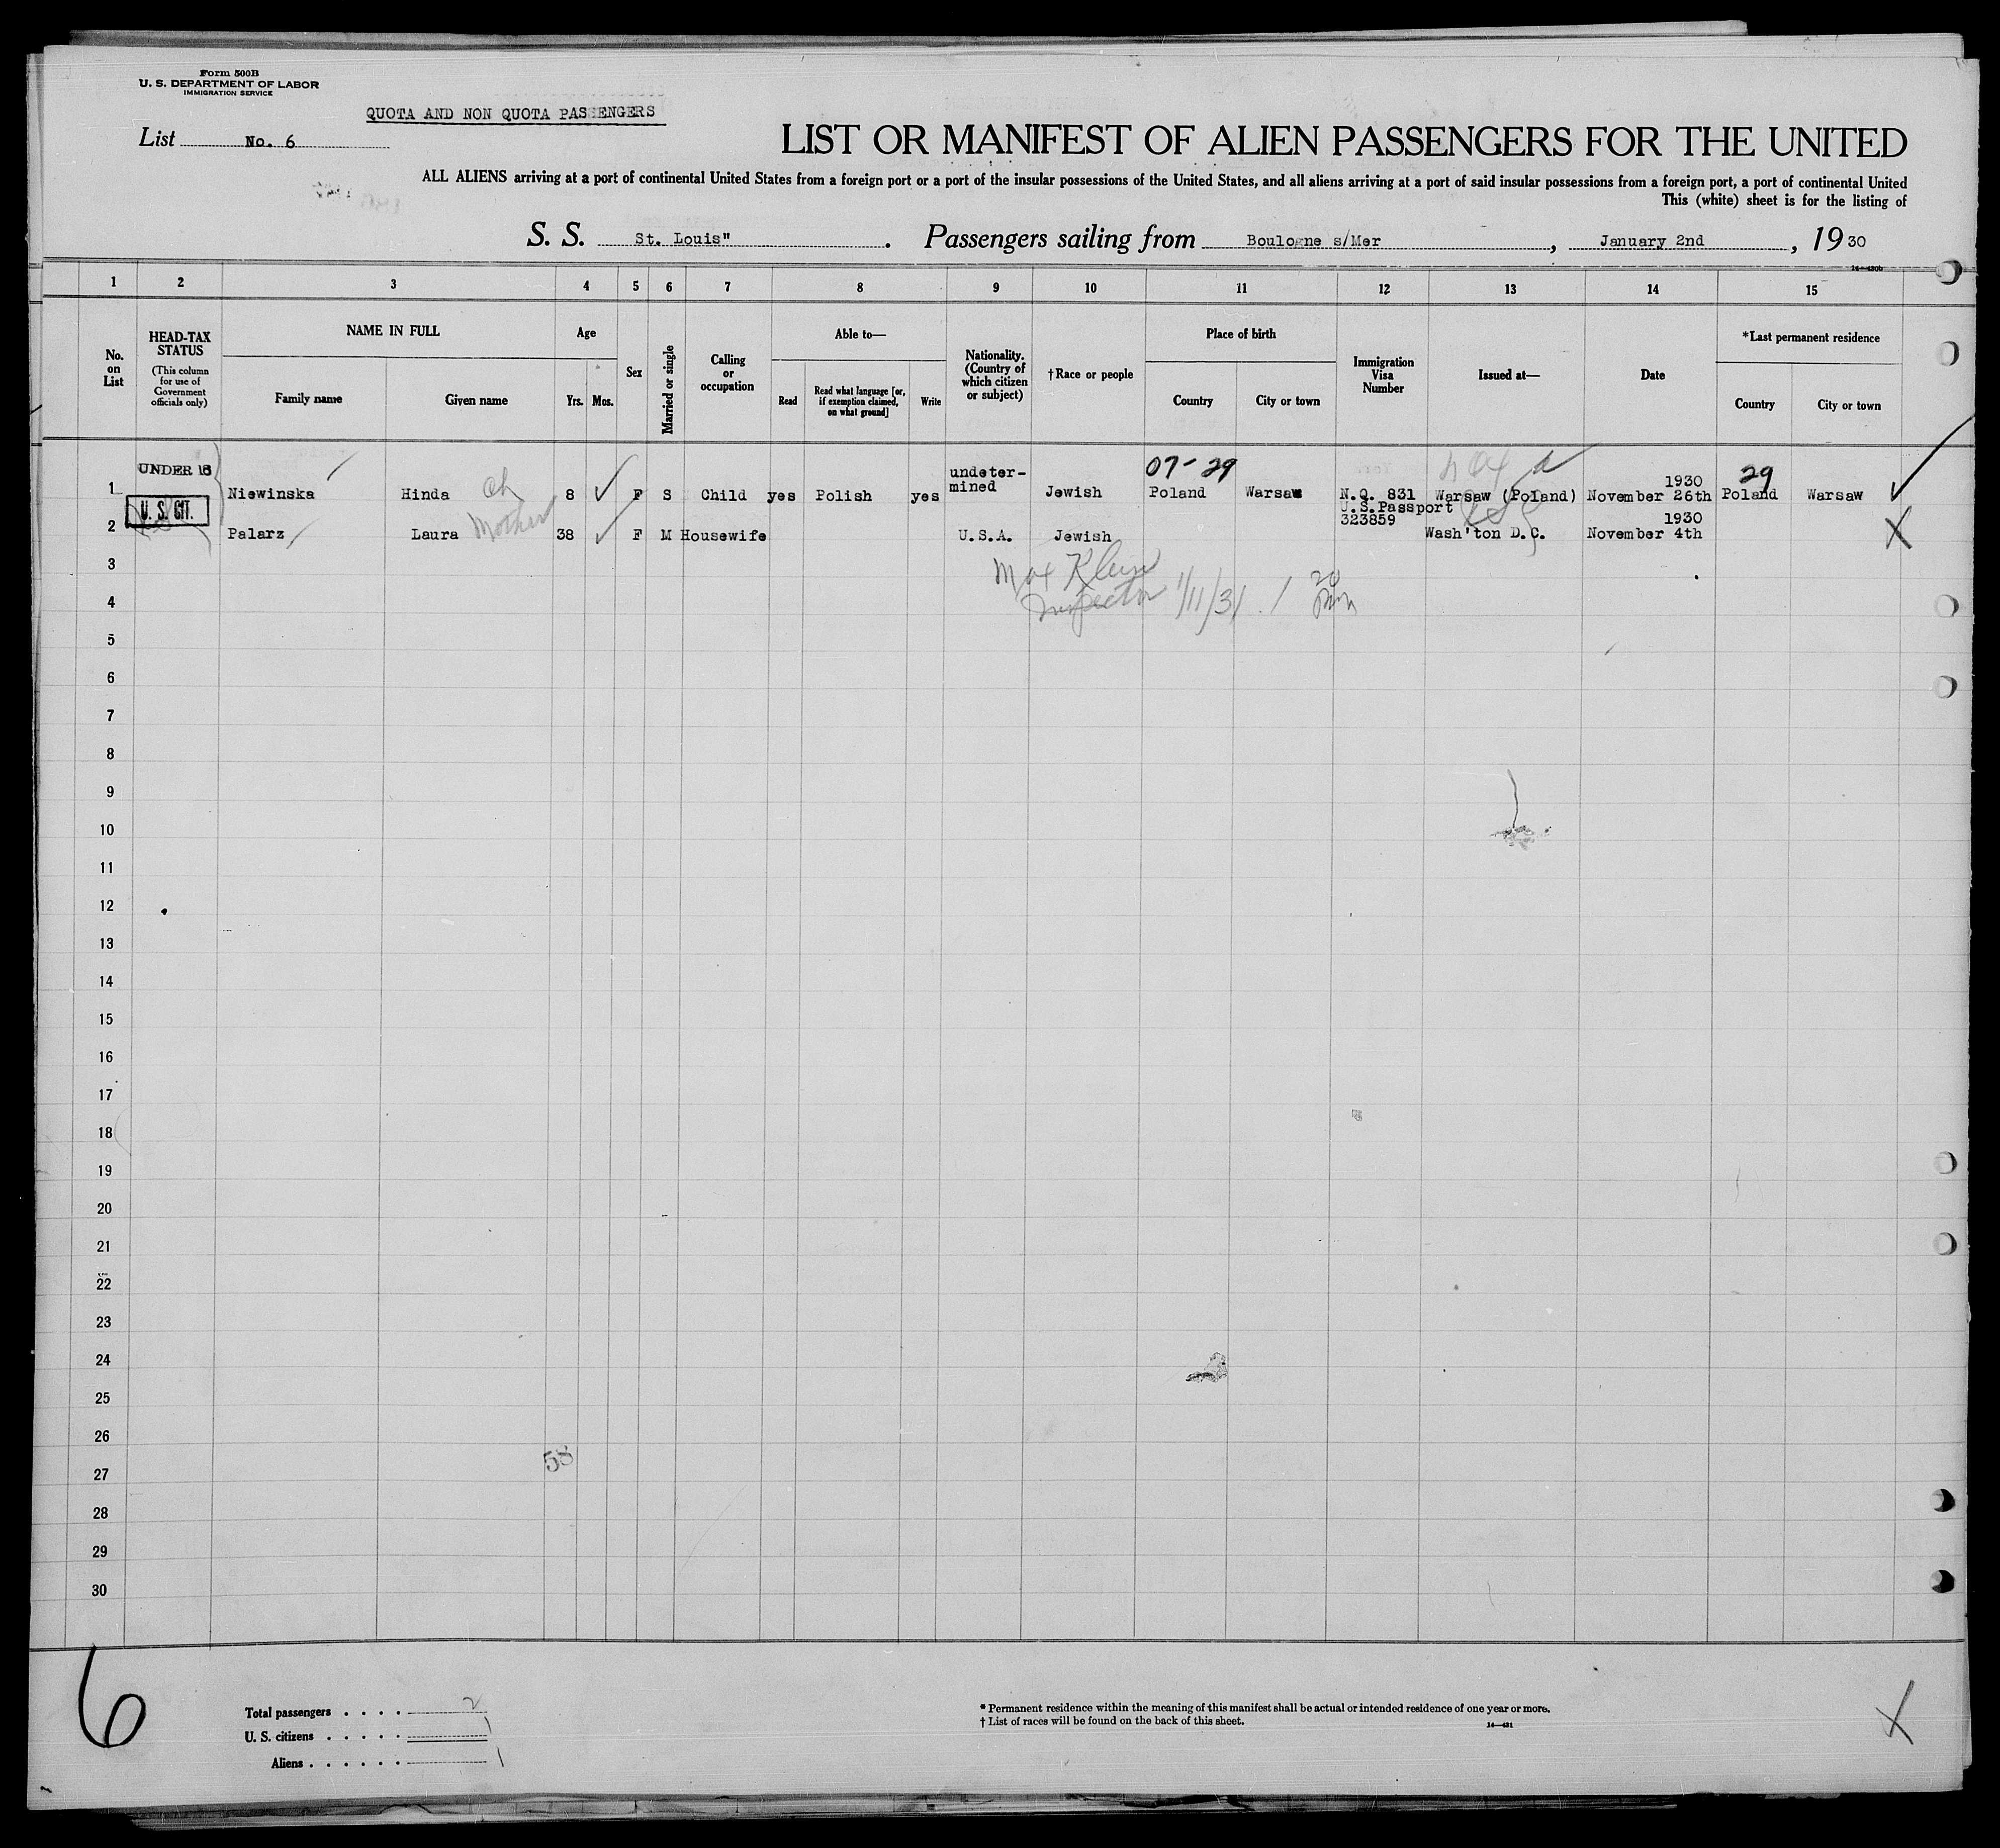 Form 500B
U. S. DEPARTMENT OF LABOR
IMMIGRATION SERVICE
QUOTA AND NON QUOTA PASSENGERS
List No. 6
LIST OR MANIFEST OF ALIEN PASSENGERS FOR THE UNITED
ALL ALIENS arriving at a port of continental United States from a foreign port or a port of the insular possessions of the United States, and all aliens arriving at a port of said insular possessions from a foreign port, a port of continental United
This (white) sheet is for the listing of
S. S. St. Louis". Passengers sailing from Boulogne s/Mer, January 2nd, 1930
14—430b
1 2 3 4 5 6 7 8 9 10 11 12 13 14 15
No. on List
HEAD-TAX STATUS
(This column for use of Government officials only)
NAME IN FULL
Family name
Given name
Age
Yrs. Mos.
Sex
Married or single
Calling or occupation
Able to—
Read
Read what language [or, if exemption claimed, on what ground]
Write
Nationality. (Country of which citizen or subject)
†Race or people
Place of birth
Country
City or town
Immigration Visa Number
Issued at—
Date
*Last permanent residence
Country
City or town
07-29
29
1 UNDER 16 Niewinska Hinda ch 8 F S Child yes Polish yes undeter-mined Jewish Poland Warsaw N.Q. 831 Warsaw (Poland) 1930 November 26th Poland Warsaw
2 U. S. CIT. Palarz Laura Mother 38 F M Housewife U.S.A. Jewish U.S.Passport 323859 Wash'ton D.C. 1930 November 4th
3 Max Klein
4 Inspector 1/11/31
5
6
7
8
9
10
11
12
13
14
15
16
17
18
19
20
21
22
23
24
25
26
58
27
28
29
30
6
Total passengers . . . . 2
U. S. citizens . . . . . 1
Aliens . . . . . . 1
* Permanent residence within the meaning of this manifest shall be actual or intended residence of one year or more.
† List of races will be found on the back of this sheet.
14—431
X